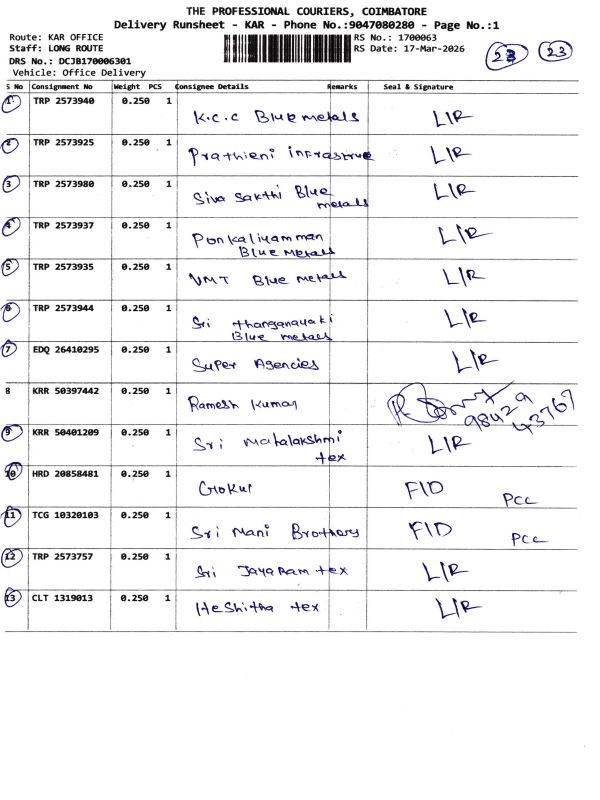 THE PROFESSIONAL COURIERS, COIMBATORE
Delivery Runsheet - KAR - Phone No.:9047080280 - Page No.:1
Route: KAR OFFICE RS No.: 1700063
Staff: LONG ROUTE RS Date: 17-Mar-2026
DRS No.: DCJB170006301
Vehicle: Office Delivery
23 23
S No Consignment No Weight PCS Consignee Details Remarks Seal & Signature
1 TRP 2573940 0.250 1 K.C.C Blue metals L/R
2 TRP 2573925 0.250 1 Prathieni infrastrue L/R
3 TRP 2573980 0.250 1 Siva Sakthi Blue L/R
metals
4 TRP 2573937 0.250 1 Ponkaliyamman L/R
Blue metals
5 TRP 2573935 0.250 1 VMT Blue metals L/R
6 TRP 2573944 0.250 1 Sri thanganayaki L/R
Blue metals
7 EDQ 26410295 0.250 1 Super Agencies L/R
8 KRR 50397442 0.250 1 Ramesh Kumar 98429
43767
9 KRR 50401209 0.250 1 Sri Mahalakshmi L/R
tex
10 HRD 20858481 0.250 1 Gokul FID PCC
11 TCG 10320103 0.250 1 Sri Mani Brothers FID PCC
12 TRP 2573757 0.250 1 Sri Jayaram tex L/R
13 CLT 1319013 0.250 1 Heshitha tex L/R